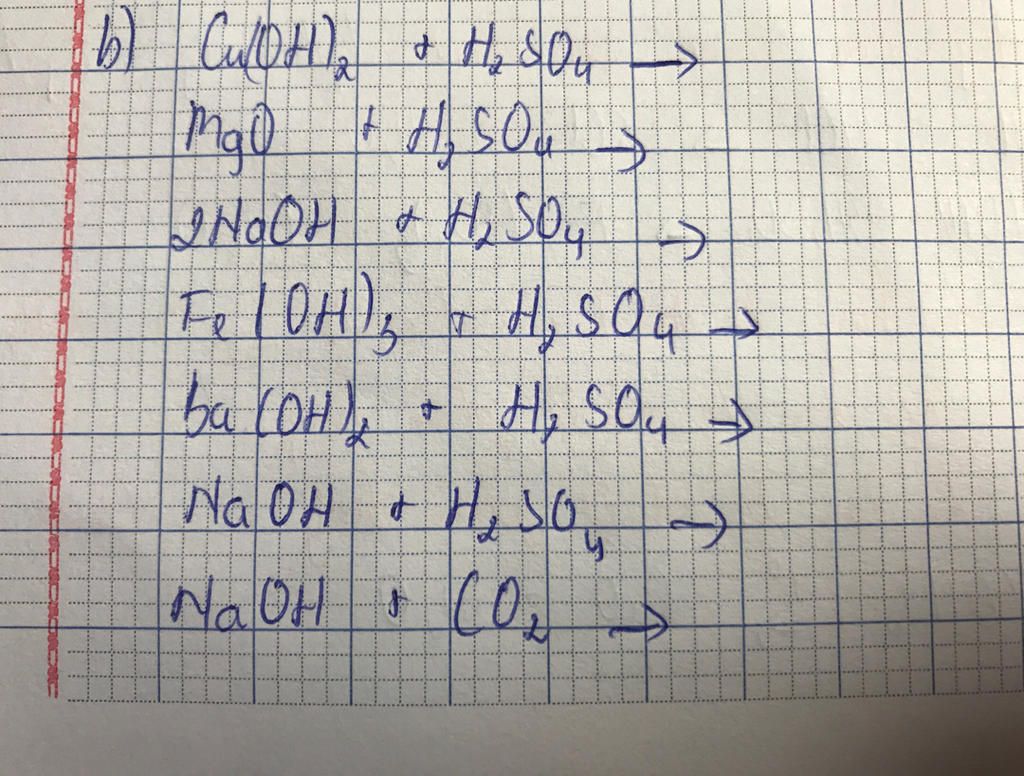 b) Cu(OH)₂ + H₂SO₄ →
MgO + H₂SO₄ →
2NaOH + H₂SO₄ →
Fe(OH)₃ + H₂SO₄ →
ba(OH)₂ + H₂SO₄ →
NaOH + H₂SO₄ →
NaOH + CO₂ →